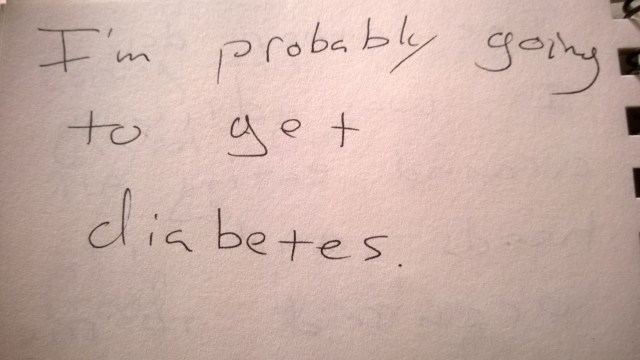 I'm probably going
to get
diabetes.